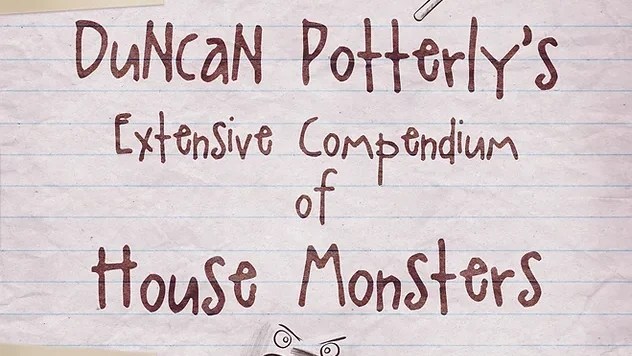 Duncan Potterly's
Extensive Compendium
of
House Monsters